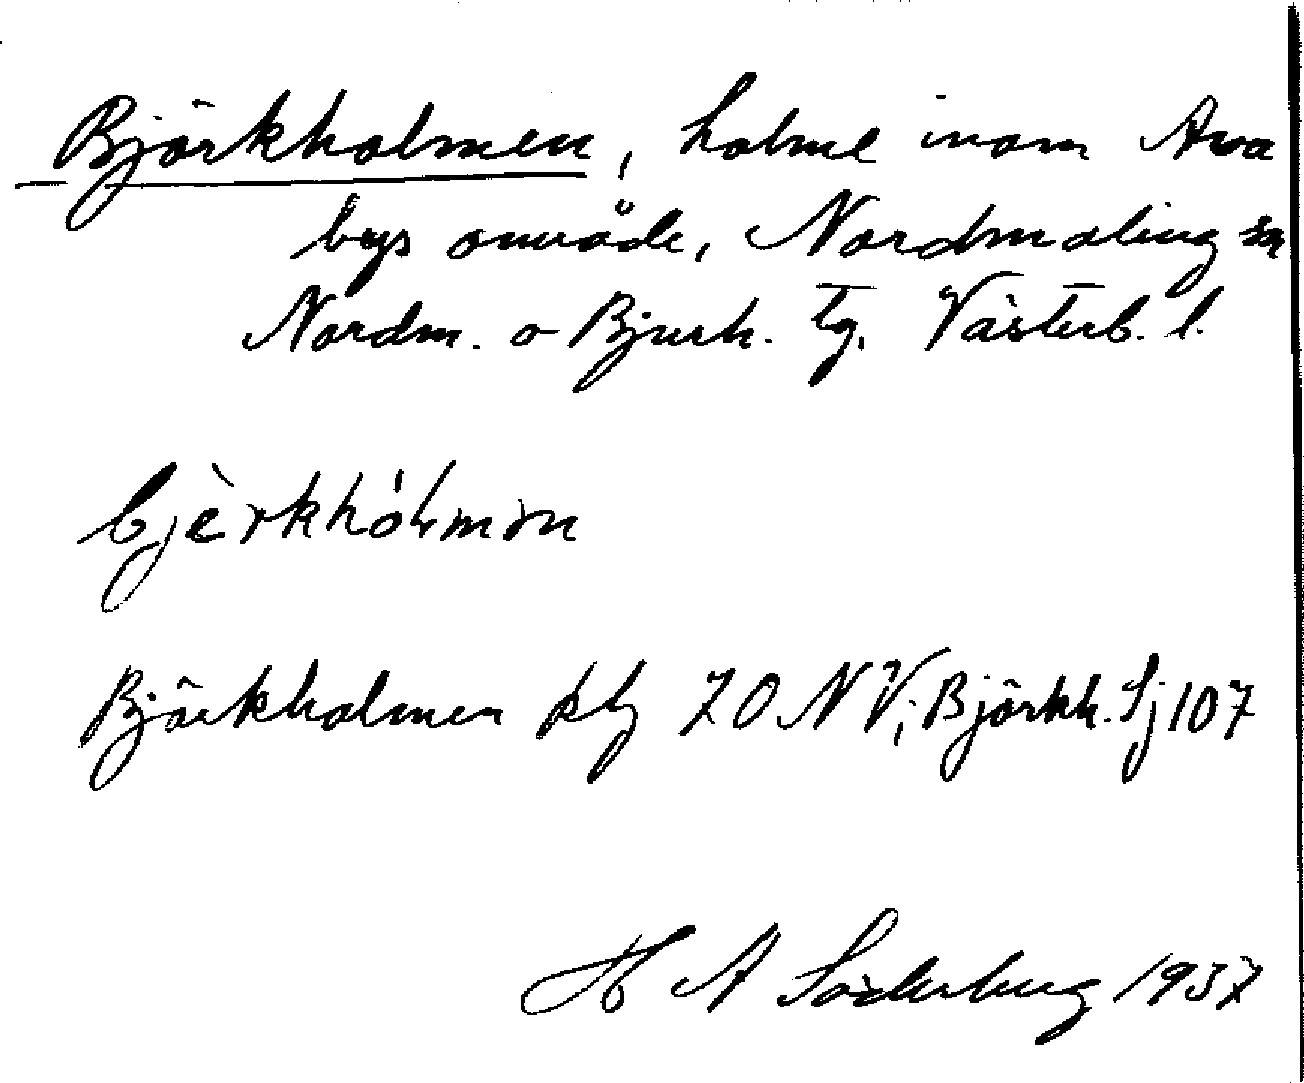 Björkholmen, holme inom Ava
bys område, Nordmaling sn
Nordm. o Bjurh. tg. Västerb. l.
bjèrkhólmon
Björkholmen ktg 70 NV; Björkh. Sj 107
H A Söderberg 1937